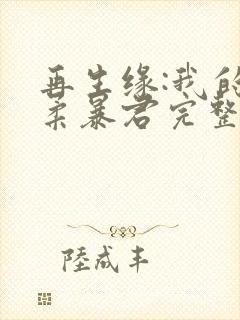 再生缘:我的
柔暴君完整
陸成丰